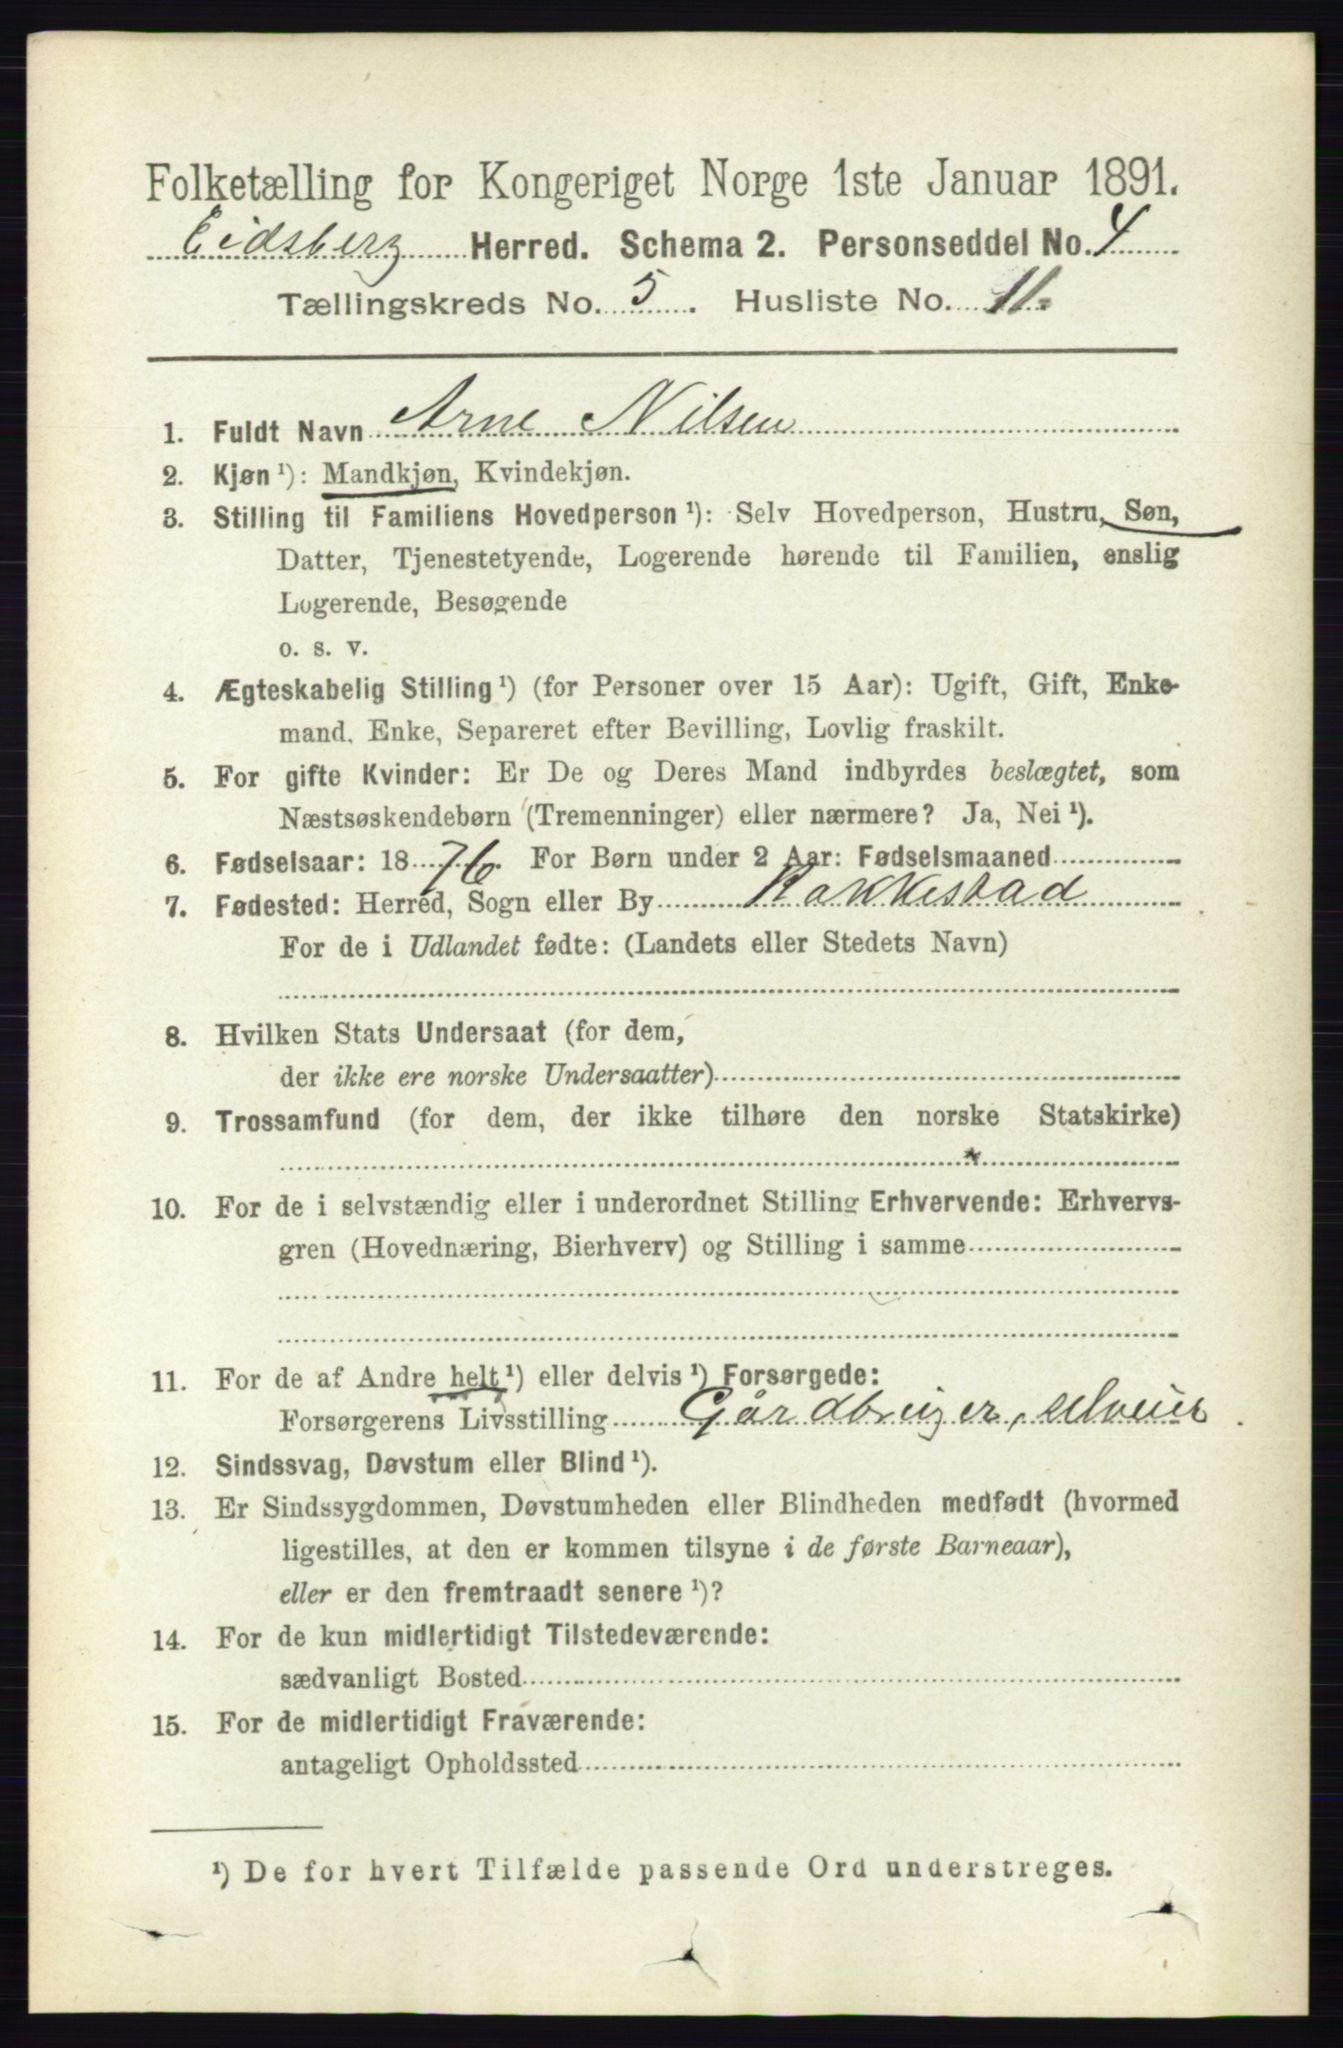 Folketælling for Kongeriget Norge 1ste Januar 1891.
Eidsberg Herred. Schema 2. Personseddel No. 4
Tællingskreds No. 5. Husliste No. 11.
1. Fuldt Navn Arne Nilsen
2. Kjøn ¹): Mandkjøn, Kvindekjøn.
3. Stilling til Familiens Hovedperson ¹): Selv Hovedperson, Hustru, Søn,
Datter, Tjenestetyende, Logerende hørende til Familien, enslig
Logerende, Besøgende
o. s. v.
4. Ægteskabelig Stilling ¹) (for Personer over 15 Aar): Ugift, Gift, Enke-
mand, Enke, Separeret efter Bevilling, Lovlig fraskilt.
5. For gifte Kvinder: Er De og Deres Mand indbyrdes beslægtet, som
Næstsøskendebørn (Tremenninger) eller nærmere? Ja, Nei ¹).
6. Fødselsaar: 1876. For Børn under 2 Aar: Fødselsmaaned
7. Fødested: Herred, Sogn eller By Rakkestad
For de i Udlandet fødte: (Landets eller Stedets Navn)
8. Hvilken Stats Undersaat (for dem,
der ikke ere norske Undersaatter)
9. Trossamfund (for dem, der ikke tilhøre den norske Statskirke)
10. For de i selvstændig eller i underordnet Stilling Erhvervende: Erhvervs-
gren (Hovednæring, Bierhverv) og Stilling i samme
11. For de af Andre helt ¹) eller delvis ¹) Forsørgede:
Forsørgerens Livsstilling Gårdbruger, selveier
12. Sindssvag, Døvstum eller Blind ¹).
13. Er Sindssygdommen, Døvstumheden eller Blindheden medfødt (hvormed
ligestilles, at den er kommen tilsyne i de første Barneaar),
eller er den fremtraadt senere ¹)?
14. For de kun midlertidigt Tilstedeværende:
sædvanligt Bosted
15. For de midlertidigt Fraværende:
antageligt Opholdssted
¹) De for hvert Tilfælde passende Ord understreges.